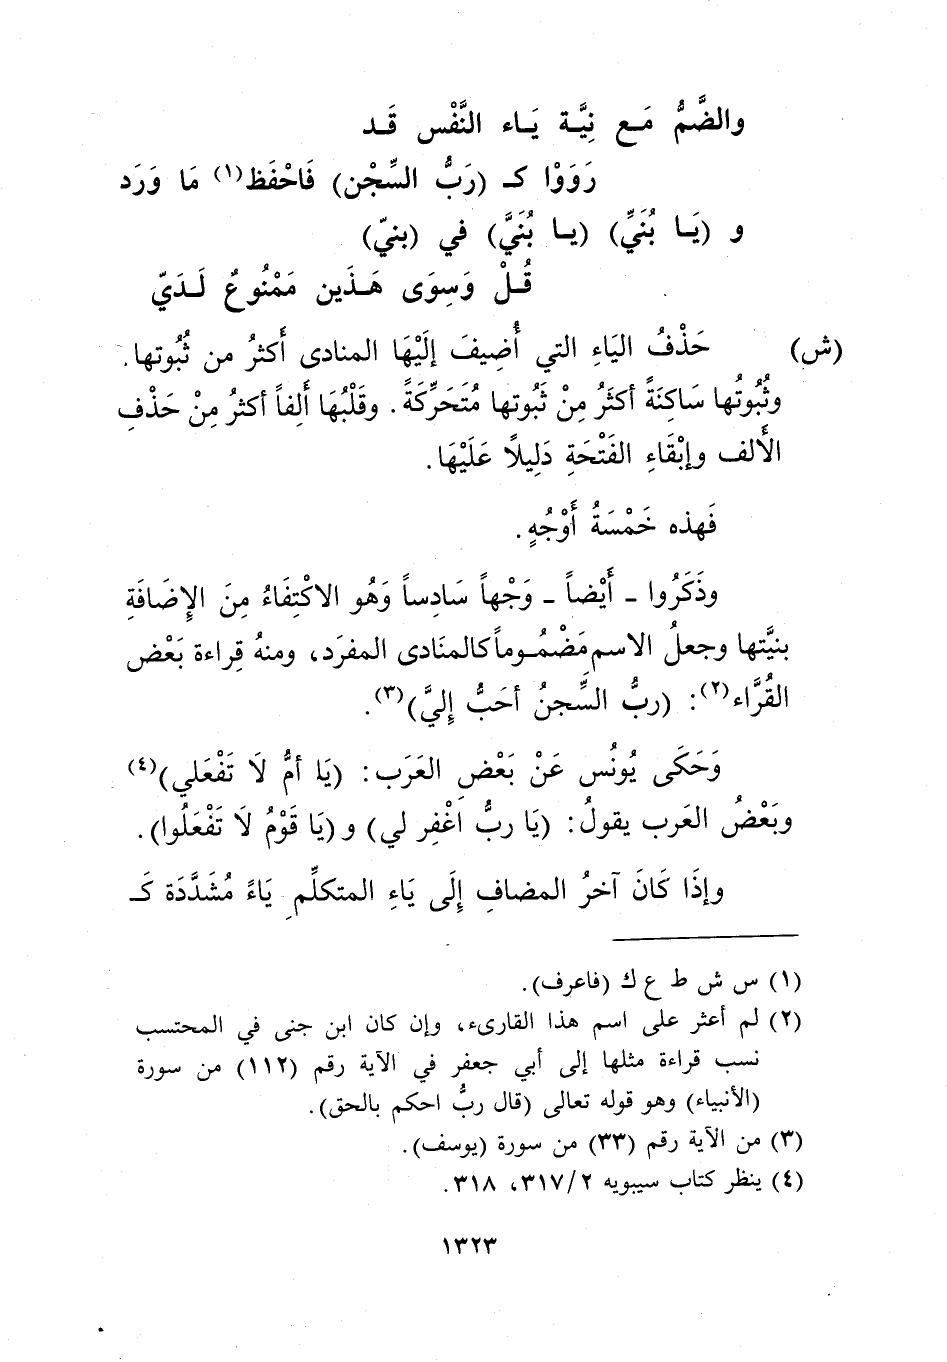 والضَّمُّ مَـع نِيَّـة يَـاء النَّفْس قَـد
رَوَوْا كـ (رَبُّ السِّجْن) فَاحْفَظ(١) مَا وَرَد
و (يَـا بُنَيِّ) (يـا بُنَيَّ) في (بنيّ)
قُـلْ وَسِوَى هَـذَين مَمْنُوعٌ لَـدَيّ
(ش) حَذْفُ اليَاءِ التي أُضِيفَ إلَيْهَا المنادى أَكثرُ من ثُبُوتها.
وثُبُوتُها سَاكنَةً أكثَرُ مِنْ ثَبُوتها مُتَحَرِّكَةً. وقَلْبُهَا أَلِفاً أكثرُ مِنْ حَذْفِ
الأَلف وإبْقَاءِ الفَتْحَةِ دَلِيلًا عَلَيْهَا.
فَهذه خَمْسَةُ أَوْجُهٍ.
وذَكَرُوا - أَيْضاً - وَجْهاً سَادِساً وَهُو الاكْتِفَاءُ مِنَ الإِضَافَةِ
بنيَّتها وجعلُ الاسم مَضْمُـوماً كالمنَادى المفرَد، ومنهُ قِراءة بَعْض
القُرَّاء(٢): (ربُّ السِّجنُ أحَبُّ إِليَّ)(٣).
وَحَكَى يُونُس عَنْ بَعْضِ العَرَب: (يَا أمُّ لَا تَفْعَلي)(٤)
وبَعْضُ العَرب يقولُ: (يَا ربُّ اغْفِر لي) و (يَا قَوْمُ لَا تَفْعَلُوا).
وإذَا كَانَ آخرُ المضافِ إِلَى يَاءِ المتكلِّم يَاءً مُشَدَّدَة كَـ
(١) س ش ط ع ك (فاعرف).
(٢) لم أعثر على اسم هذا القارىء، وإن كان ابن جنى في المحتسب
نسب قراءة مثلها إلى أبي جعفر في الآية رقم (١١٢) من سورة
(الأنبياء) وهو قوله تعالى (قال ربُّ احكم بالحق).
(٣) من الآية رقم (٣٣) من سورة (يوسف).
(٤) ينظر كتاب سيبويه ٣١٧/٢، ٣١٨.
١٣٢٣